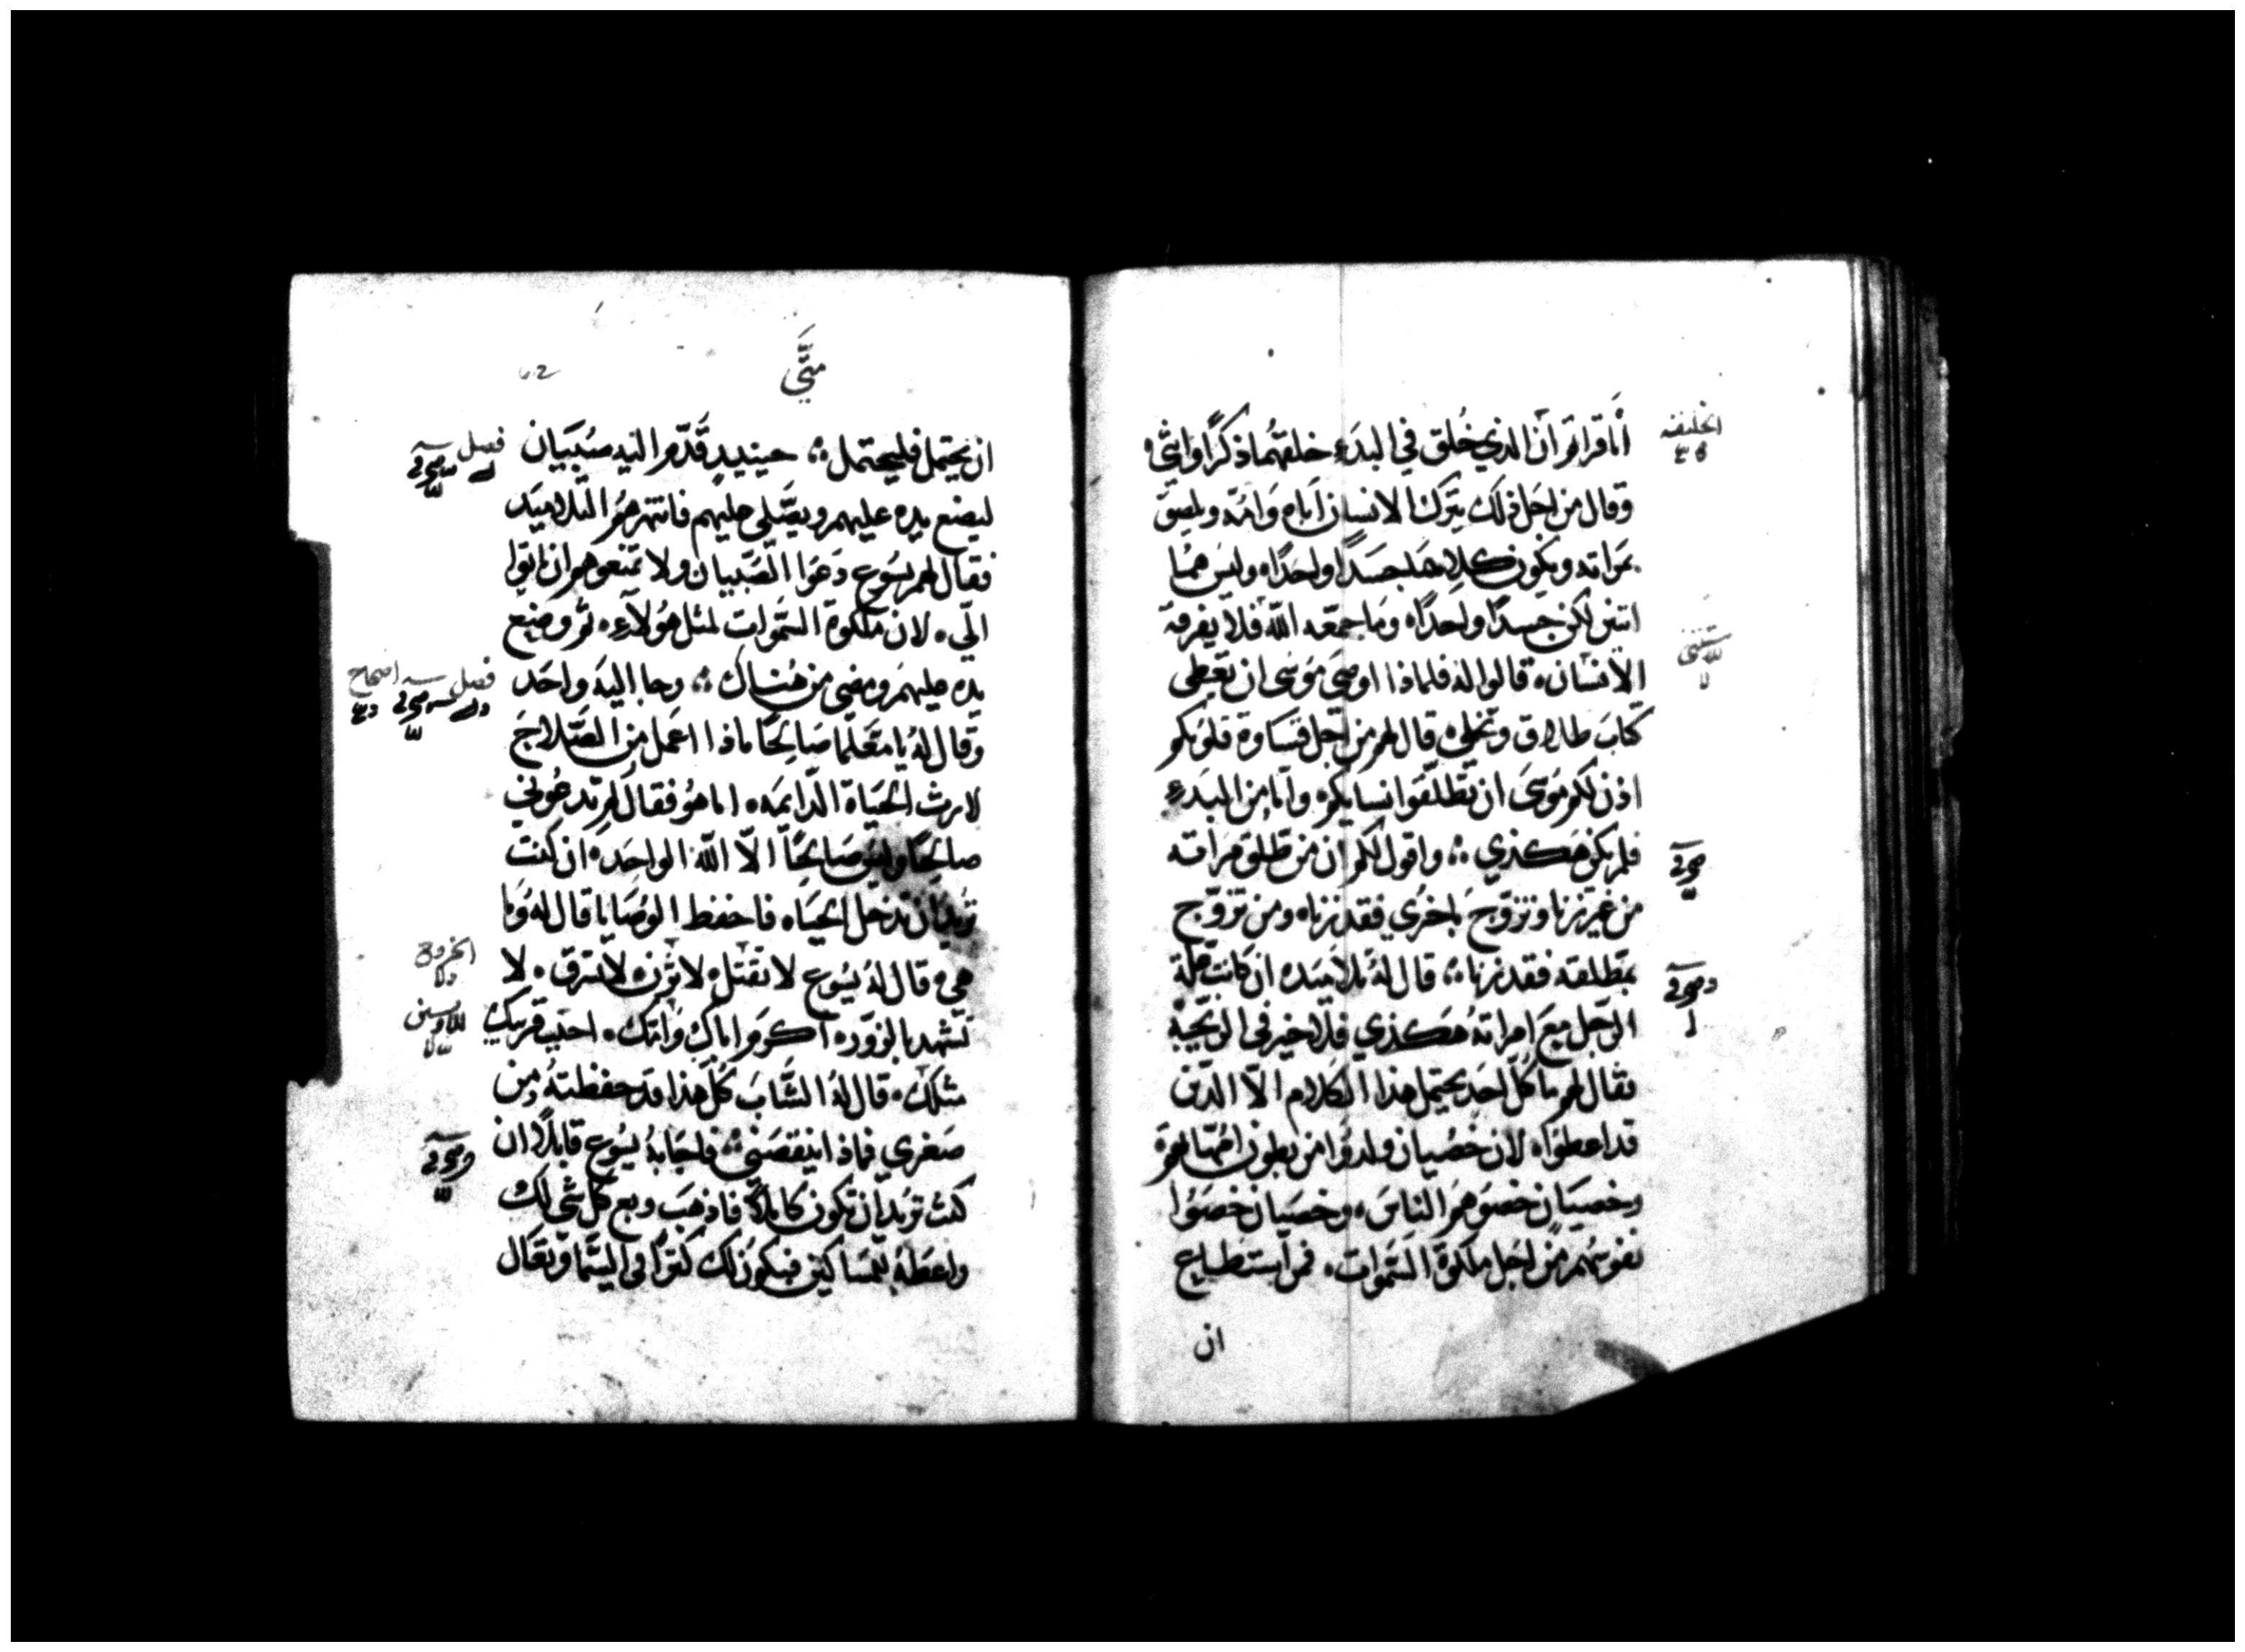 أما قراتم ان الذي خُلق في البدَء خلقهُما ذكرًا وانثي
وقال من اجَل ذلك يترك الانسان اَباه وَامّه ويلصق
بمَراته ويكون كلاهما جسَدًا واحدًا وليس همُا
اتنين لكن جسدًا واحدًا وما جمعَه اللّه فلا يفرقهُ
الانسَان قالوا له فلماذا اوصَي موَسُي ان تعَطي
كتابَ طلاق وتخلي قال لهم من اجَل قسَاوة قلوَبكم
اذن لكم موَسَي ان تطلّقوَا نسايكم واما من البدَءِ
فلم يكن هَكذي واقول لكم ان من طلق مراته
من غير زنا وتزوّجَ باخرُي فقد زنا ومن تزوّج
بمطَلقته فقد زنا قال لهُ تلاميَده ان كانت علّة
الرجَل معَ امراتهُ هَكذي فلا خير في الزيجَة
فقال لهم ما كُلّ احَد يحتمل هذا الكلام الاّ الذين
قد اعطوَا لان خصُيان ولدوُا من بطون امُهّاتهم
وخصيَان خصوَهم الناسَ وخصيَان خصَوُا
نفوسهُم من اجَل ملكوة السّموَات فمن استطاع
ان
الخليقه
مرقس
متَّي
62
ان يحتمل فليحتمل حينيدٍ قَدّم اليه صبُيَان
ليضع يده عليهم ويصَلي عليهم فانتهرهمُ التلاميَد
فقال لهم يسَوع دَعوَا الصَبيان ولا تمنعوهم ان ياتوا
اليّ لان ملكوة السّموَات لمثل هوُلآءِ ثم وضع
يده عليهم ومضي من هُناك وجا اليَه واحَد
وَقال لهُ يا معَلمّا صَالحًا ماذا اعمَل من الصَلاح
لارث الحيَاة الدَايمَه اما هوُ فقال لم تدعُوني
صالحًا وليس صَالحًا الاّ اللّه الواحَد ان كنت
ترُيدُ ان تدخل الحيَاه فاحفظ الوصَايا قال لهُ وَما
هي قال لهُ يسُوع لا تقتل لا تزن لا تسرق لا
تشهد بالزوّر اكرم اباك وَامك احبب قريبك
مثلك قال لهُ الشّابَ كُلّ هذا قد حفظتهُ من
صَغري فماذا ينقصَني فاجَابهُ يسُوع قايلاً ان
كنت ترُيد ان تكون كاملاً فاذهبَ وبع كلّ شي لك
واعطهُ للمسَاكين فيكون لك كنزًا في السَّما وتعَال
فصل
فصل
اصحاح
الخروج